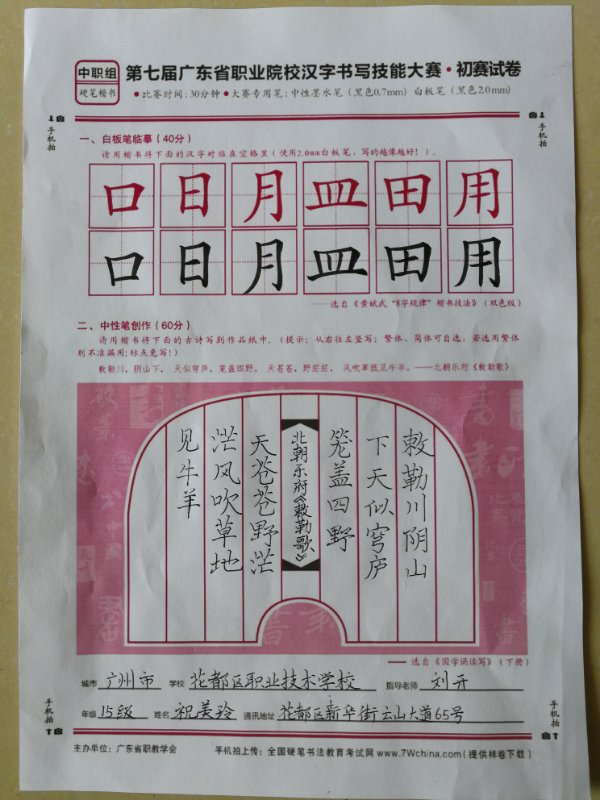 中职组
硬笔楷书
第七届广东省职业院校汉字书写技能大赛·初赛试卷
●比赛时间:30分钟●大赛专用笔:中性墨水笔(黑色0.7mm)白板笔(黑色2.0mm)
手机拍
手机拍
一、白板笔临摹(40分)
请用楷书将下面的汉字对临在空格里(使用2.0mm白板笔,写的越像越好!)。
口日月皿田用
口日月皿田用
——选自《黄斌武“8字规律”楷书技法》(双色版)
二、中性笔创作(60分)
请用楷书将下面的古诗写到作品纸中。(提示:从右往左竖写;繁体、简体可自选,若选用繁体
则不准漏用;标点免写!)
敕勒川,阴山下,天似穹庐,笼盖四野。天苍苍,野茫茫,风吹草低见牛羊。——北朝乐府《敕勒歌》
敕勒川阴山
下天似穹庐
笼盖四野
北朝乐府《敕勒歌》
天苍苍野茫
茫风吹草地
见牛羊
——选自《国学诵读写》(下册)
城市 广州市 学校 花都区职业技术学校 指导老师 刘开
年级 15级 姓名 祝美玲 通讯地址 花都区新华街云山大道65号
手机拍
手机拍
主办单位:广东省职教学会 手机拍上传:全国硬笔书法教育考试网 www.7Wchina.com(提供样卷下载)